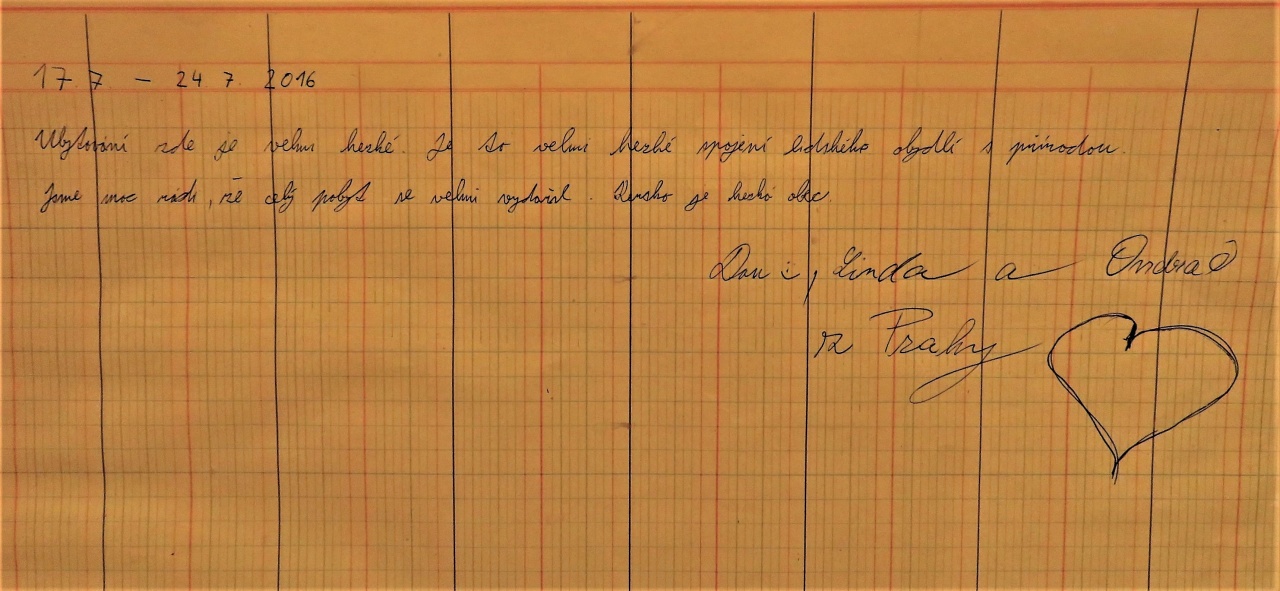 17. 7 – 24 7. 2016
Ubytování zde je velmi hezké. Je to velmi hezké spojení lidského obydlí s přírodou.
Jsme moc rádi, že celý pobyt se velmi vydařil. Kersko je hezká obec.
Dan :, Linda a Ondra
z Prahy